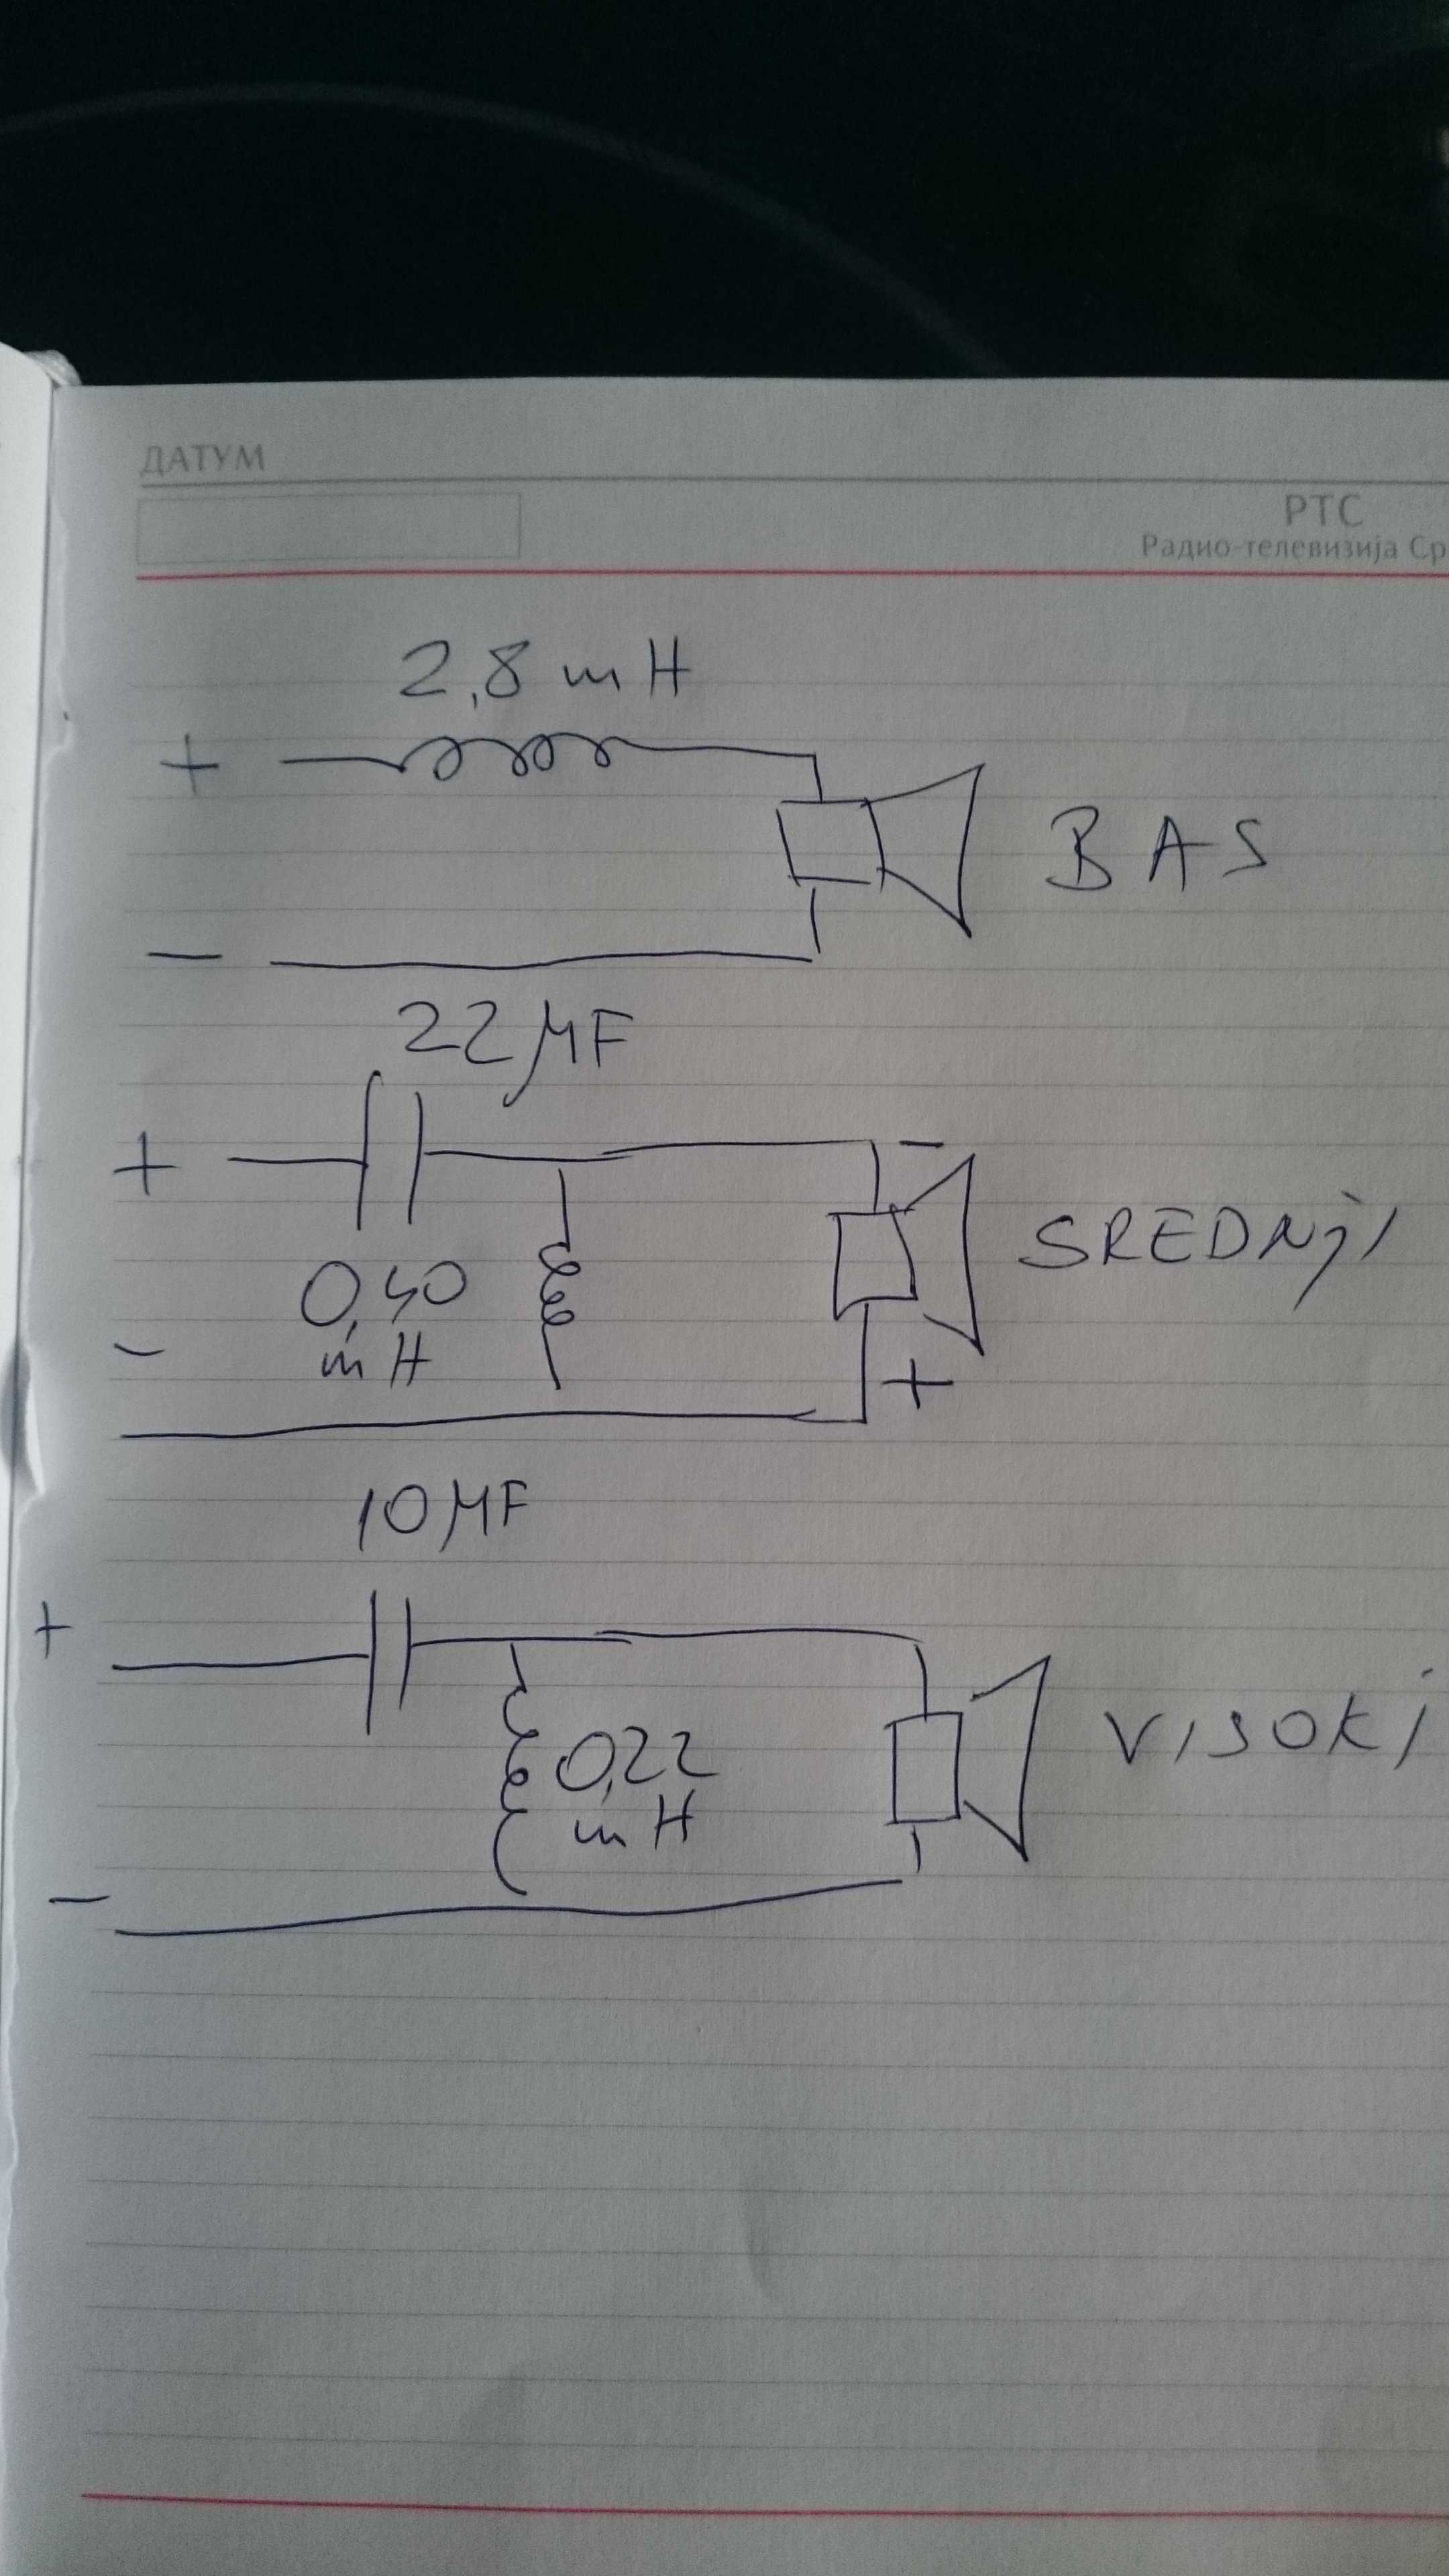 ДАТУМ
РТС
Радио-телевизија Ср
2,8 mH
+
BAS
-
22 μF
+
-
SREDNJI
0,40
mH
-
+
10 μF
+
VISOKI
0,22
mH
-